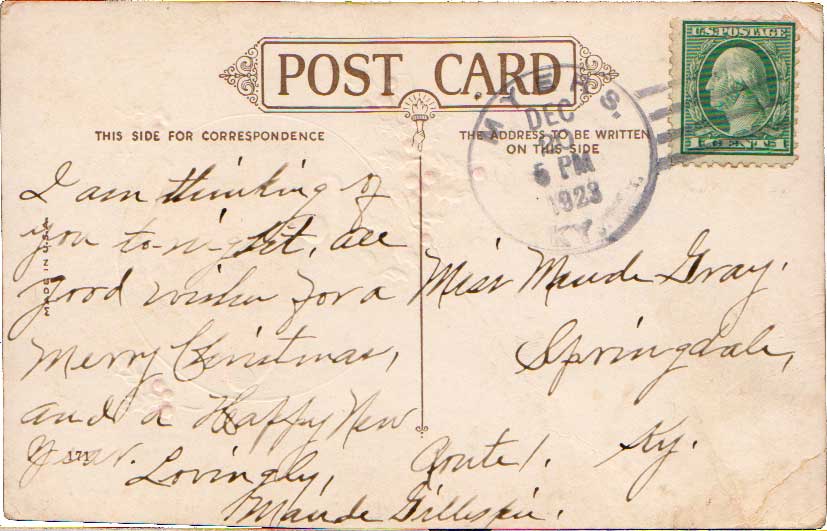 POST CARD
THIS SIDE FOR CORRESPONDENCE
THE ADDRESS TO BE WRITTEN
ON THIS SIDE
U.S. POSTAGE
1 CENT 1
MYERS.
DEC
20
6 PM
1923
KY.
MADE IN U.S.A.
I am thinking of
you to-night, all
good wishes for a
Merry Christmas,
and a Happy New
Year.
171
Lovingly,
Maude Gillispie.
Miss Maude Gray.
Springdale,
Route 1. Ky.